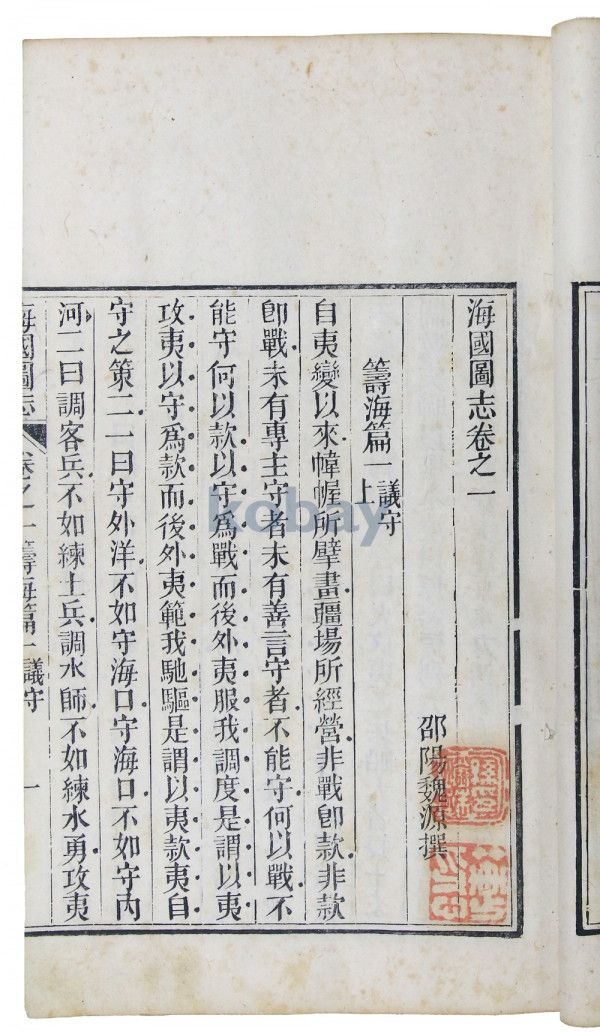 海國圖志卷之一
邵陽魏源撰
籌海篇一議守上
自夷變以來幃幄所擘畫疆場所經營非戰即款非款
即戰未有專主守者未有善言守者不能守何以戰不
能守何以款以守爲戰而後外夷服我調度是謂以夷
攻夷以守爲款而後外夷範我馳驅是謂以夷款夷自
守之策二一曰守外洋不如守海口守海口不如守內
河二曰調客兵不如練土兵調水師不如練水勇攻夷
海國圖志 卷之一 籌海篇一議守 一
kobay